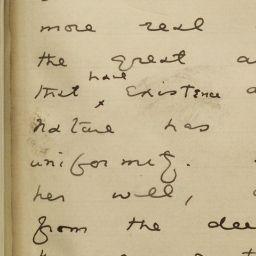 more real
the great a
have
that Existence
nature has
uniformity.
her will,
from the dee